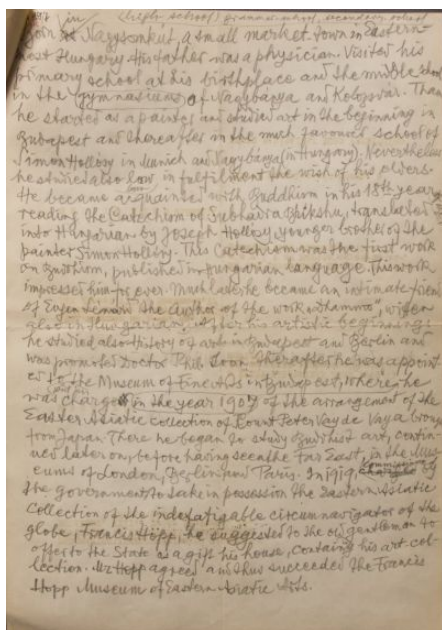 in (high school) grammar school, secondary school
born in Nagysomkut, a small market town in Eastern
most Hungary. His father was a physician. Visited his
primary school at his birthplace and the middle school
in the gymnasiums of Nagybánya and Kolozsvar. Than
he started as a painter and studied art in the beginning in
Budapest and thereafter in the much favoured school of
Simon Hollósy in Munich and Nagybánya (in Hungary). Nevertheless
he studied also law in fulfilment the wish of his elders.
He became acquainted with Buddhism in his 18th year
reading the Catechism of Subhadra Bhikshu, translated
into Hungarian by Joseph Hollósy, younger brother of the
painter Simon Hollósy. This Catechism was the first work
on Buddhism, published in Hungarian language. This work
impressed him for ever. Much later he became an intimate friend
of Eugen Lénárd the Author of the work "Dhammo", written
also in Hungarian. After his artistic beginnings
he studied also history of arts in Budapest and Berlin and
was promoted Doctor Phil. Soon thereafter he was appoint
ed to the Museum of Fine Arts in Budapest, where he
was charged in the year 1907 of the arrangement of the
Eastern Asiatic collection of Count Peter Vay de Vaya brought
from Japan. There he began to study Buddhist art, contin-
ued later on, before having seen the Far East, in the Mus-
eums of London, Berlin and Paris. In 1919, by
the government to take in possession the Eastern Asiatic
Collection of the indefatigable circumnavigator of the
globe, Francis Hopp, he suggested to the old gentleman to
offer to the State as a gift his house, containg his art col-
lection. Mr Hopp agreed and thus succeeded the Francis
Hopp Museum of Eastern Asiatic Arts.